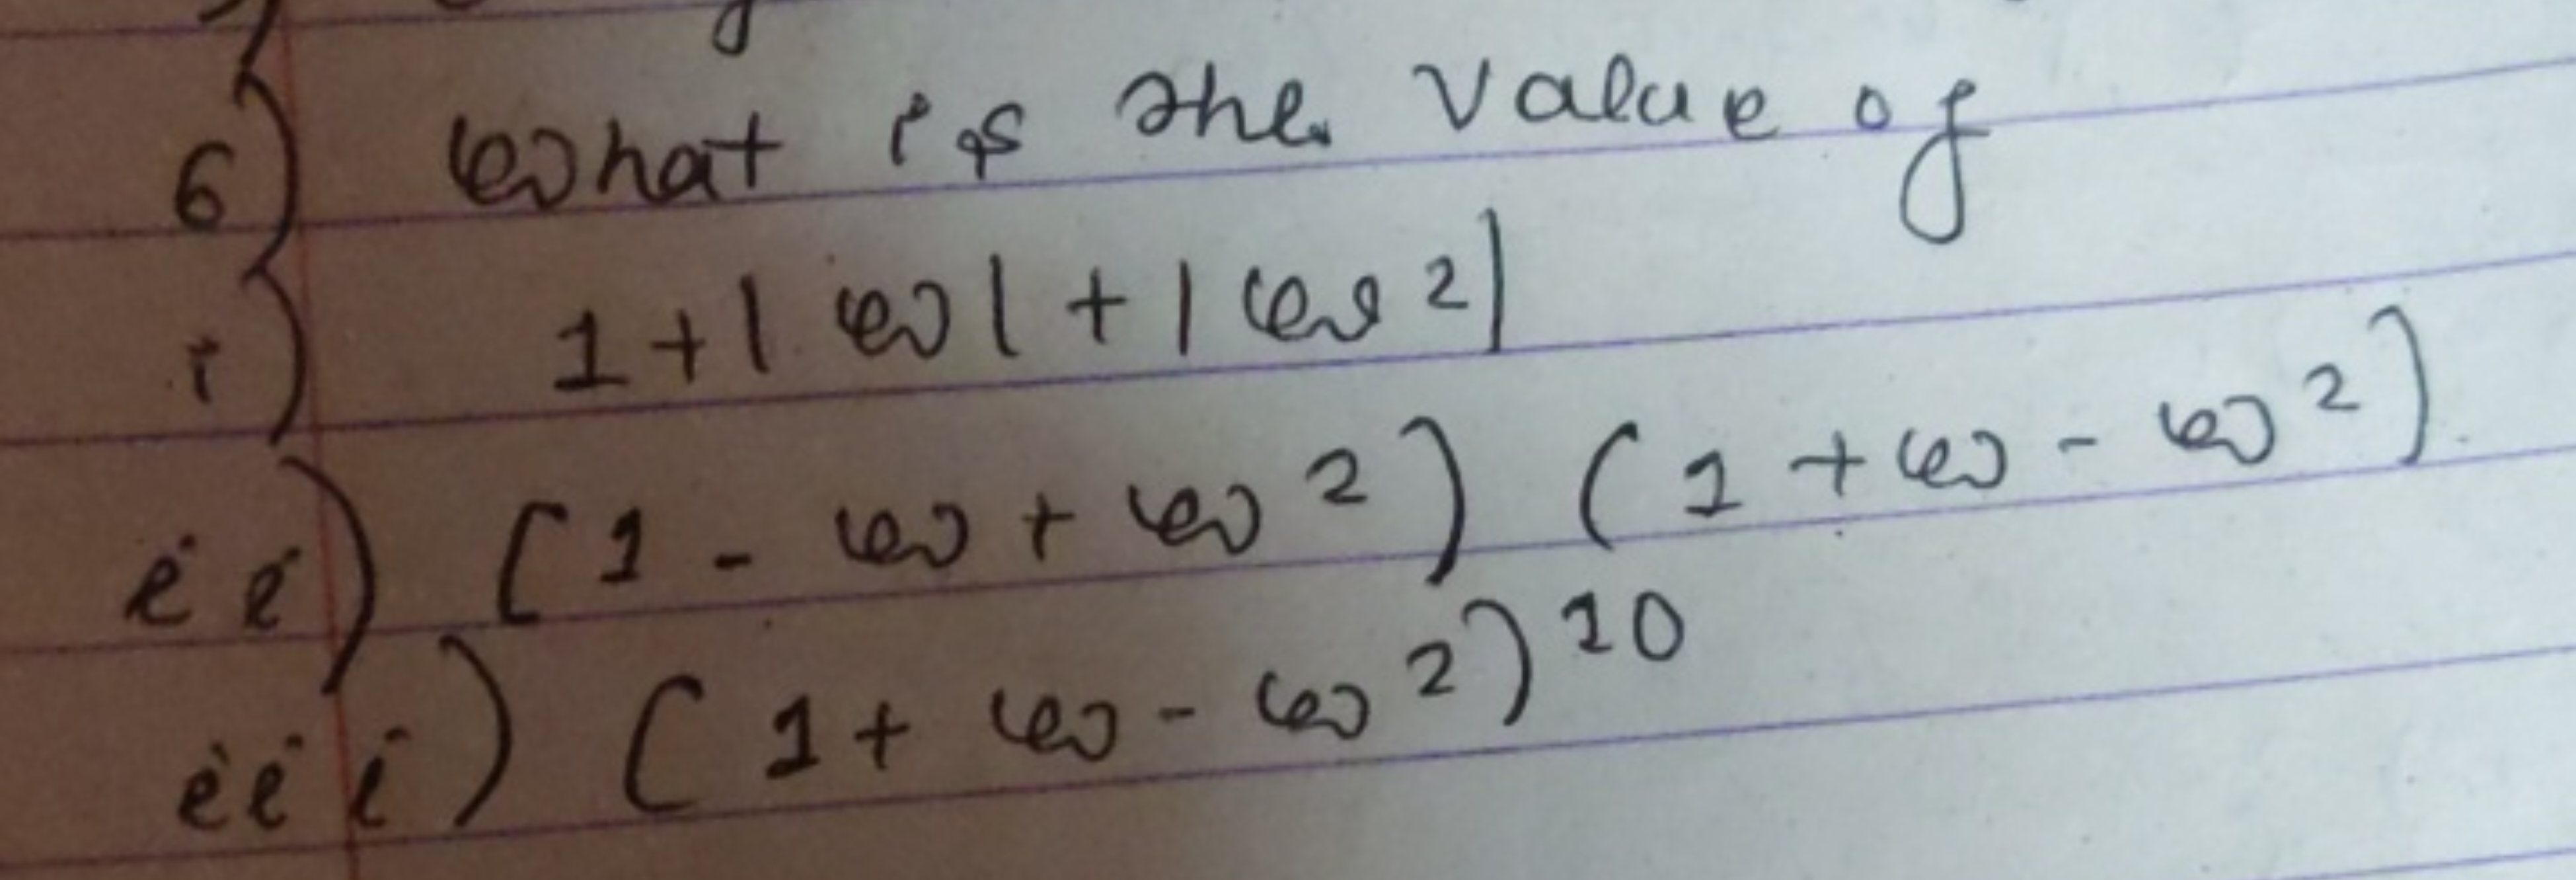 6) What is the value of
i) 1 + |ω| + |ω²|
ii) (1 - ω + ω²) (1 + ω - ω²)
iii) (1 + ω - ω²)¹⁰